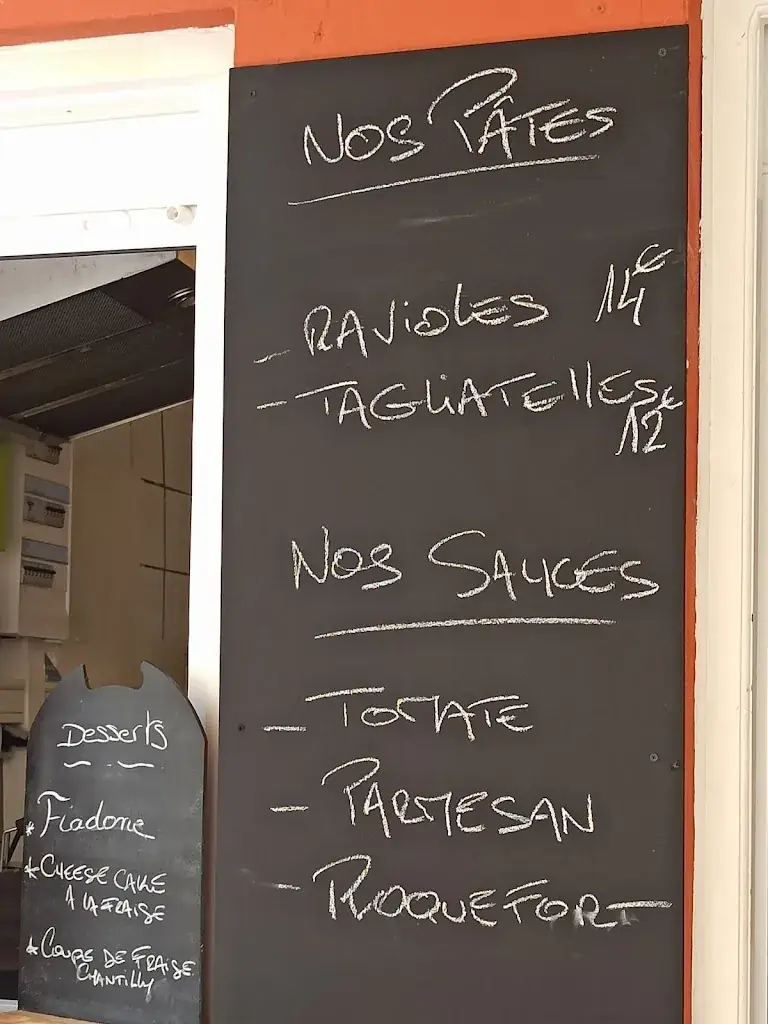 NOS PÂTES
- RAVIOLES 14€
- TAGLIATELLES
12€
NOS SAUCES
- TOMATE
- PARMESAN
- ROQUEFORT
Desserts
* Fiadone
* CHEESE CAKE
À LA FRAISE
* COUPE DE FRAISE
CHANTILLY